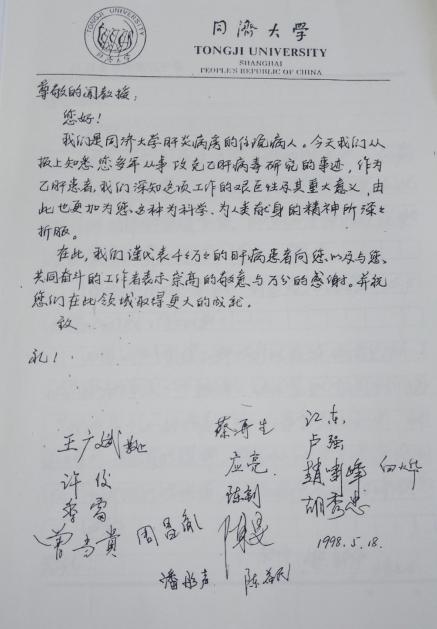 TONGJI UNIVERSITY
同濟大学
TONGJI UNIVERSITY
SHANGHAI
PEOPLE'S REPUBLIC OF CHINA
尊敬的闻教授:
您好!
我们是同济大学肝炎病房的住院病人。今天我们从
报上知悉您多年从事攻克乙肝病毒研究的事迹,作为
乙肝患者,我们深知这项工作的艰巨性及其重大意义,由
此也更加为您这种为科学、为人类献身的精神所深深
折服。
在此,我们谨代表千千万万的肝病患者向您以及与您
共同奋斗的工作者表示崇高的敬意与万分的感谢。并祝
您们在此领域取得更大的成就。
致
礼!
王广斌 蔡再生 江东
许俊 应亮 卢强
李雷 陈钊 胡秀忠
周昌
1998.5.18.